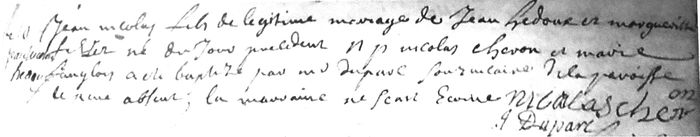 Jean nicolas fils de legitime mariage de Jean Ledoux et marguerite
ne du Jour precedent p nicolas cheron et marie
Langlois a ete baptize par mr Duparc sousvicaire de la paroisse
le cure absent; la marraine ne scait Ecrire Nicolas cheron
Duparc